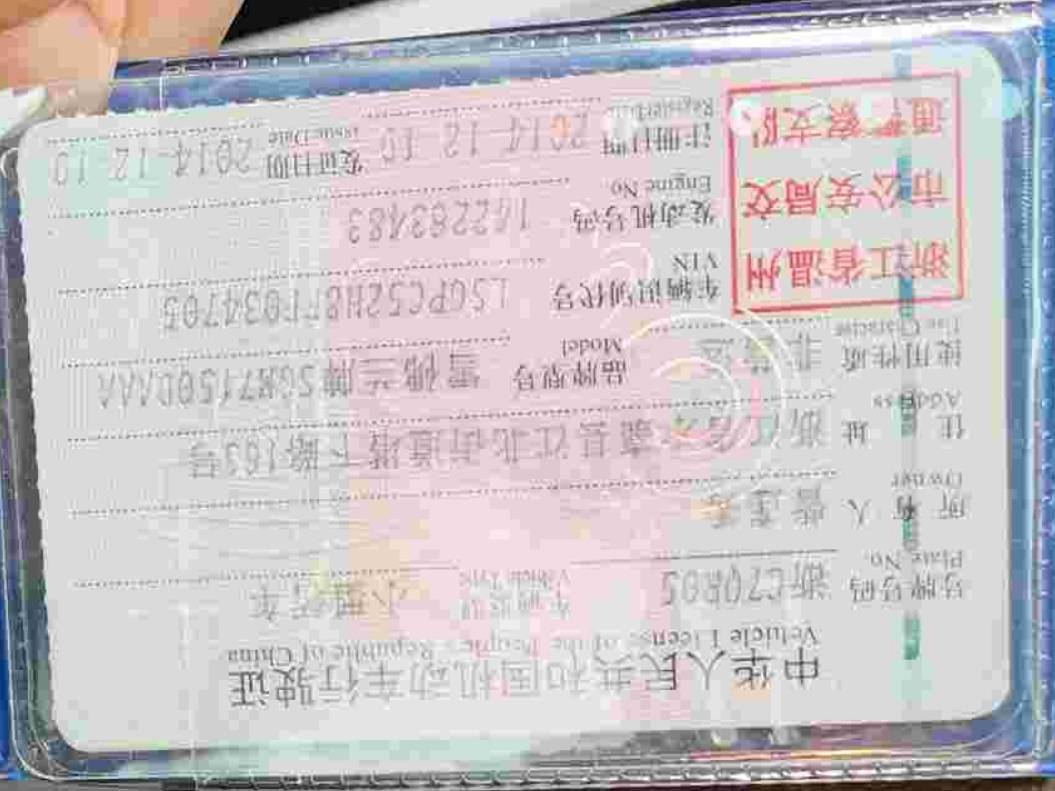 中华人民共和国机动车行驶证
Vehicle License of the People's Republic of China
号牌号码 浙C7QR05 车辆类型 小型轿车
Plate No. Vehicle Type
所有人
Owner
住址 浙江省永嘉县江北街道塔下路163号
Address
使用性质 非营运 品牌型号 雪佛兰牌SGM7150DAAA
Use Character Model
浙江省温州
市公安局交
通警察支队
车辆识别代号 LSGPC52H8FF034705
VIN
发动机号码 142283483
Engine No.
注册日期 2014-12-10 发证日期 2014-12-10
Register Date Issue Date